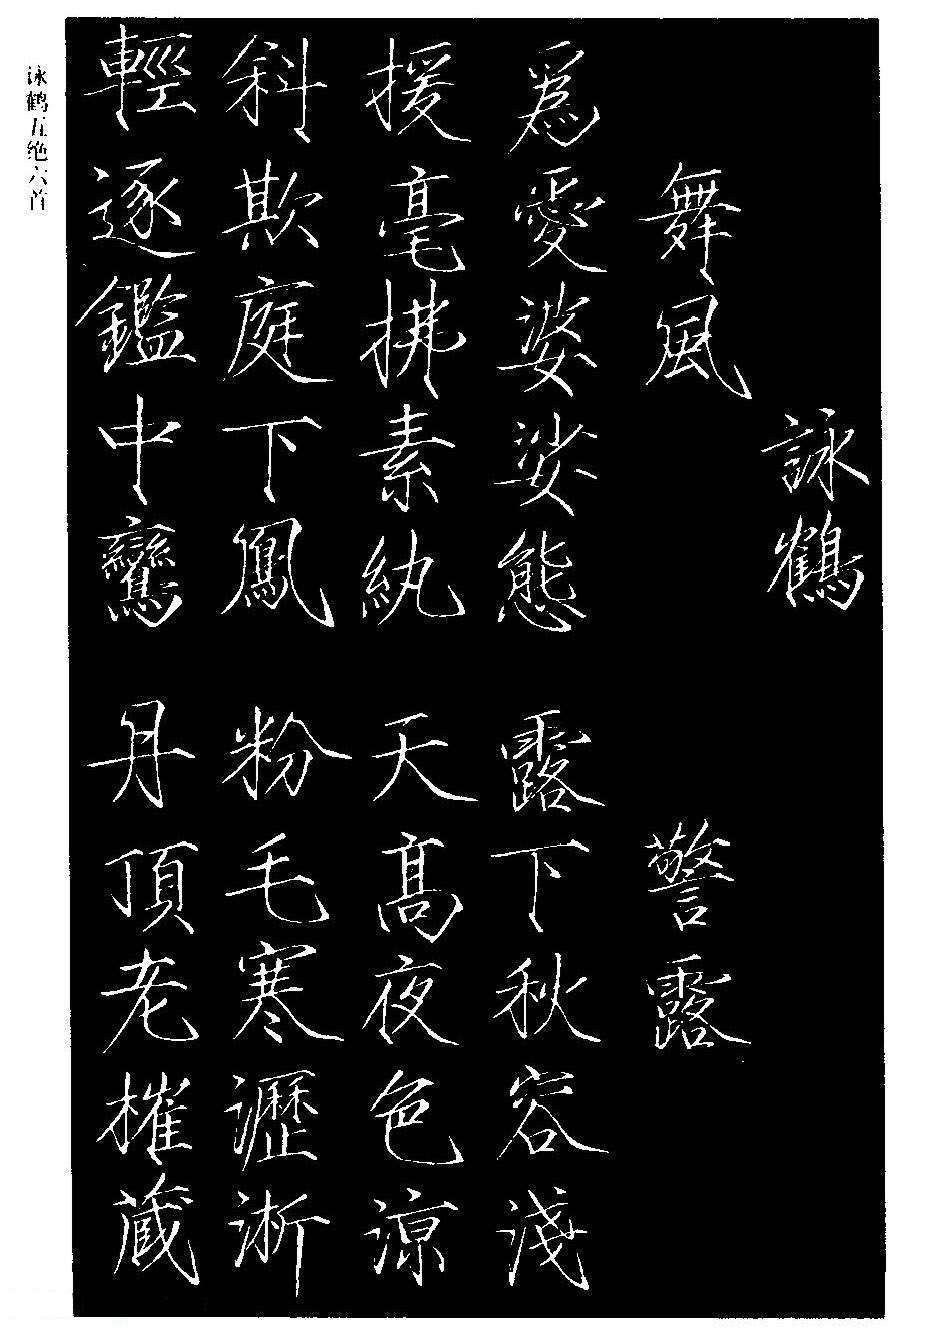 詠鶴
舞風
為愛婆娑態
援毫拂素紈
斜欺庭下鳳
輕逐鑑中鸞
警露
露下秋容淺
天高夜色涼
粉毛寒瀝淅
丹頂老摧藏
咏鹤五绝六首